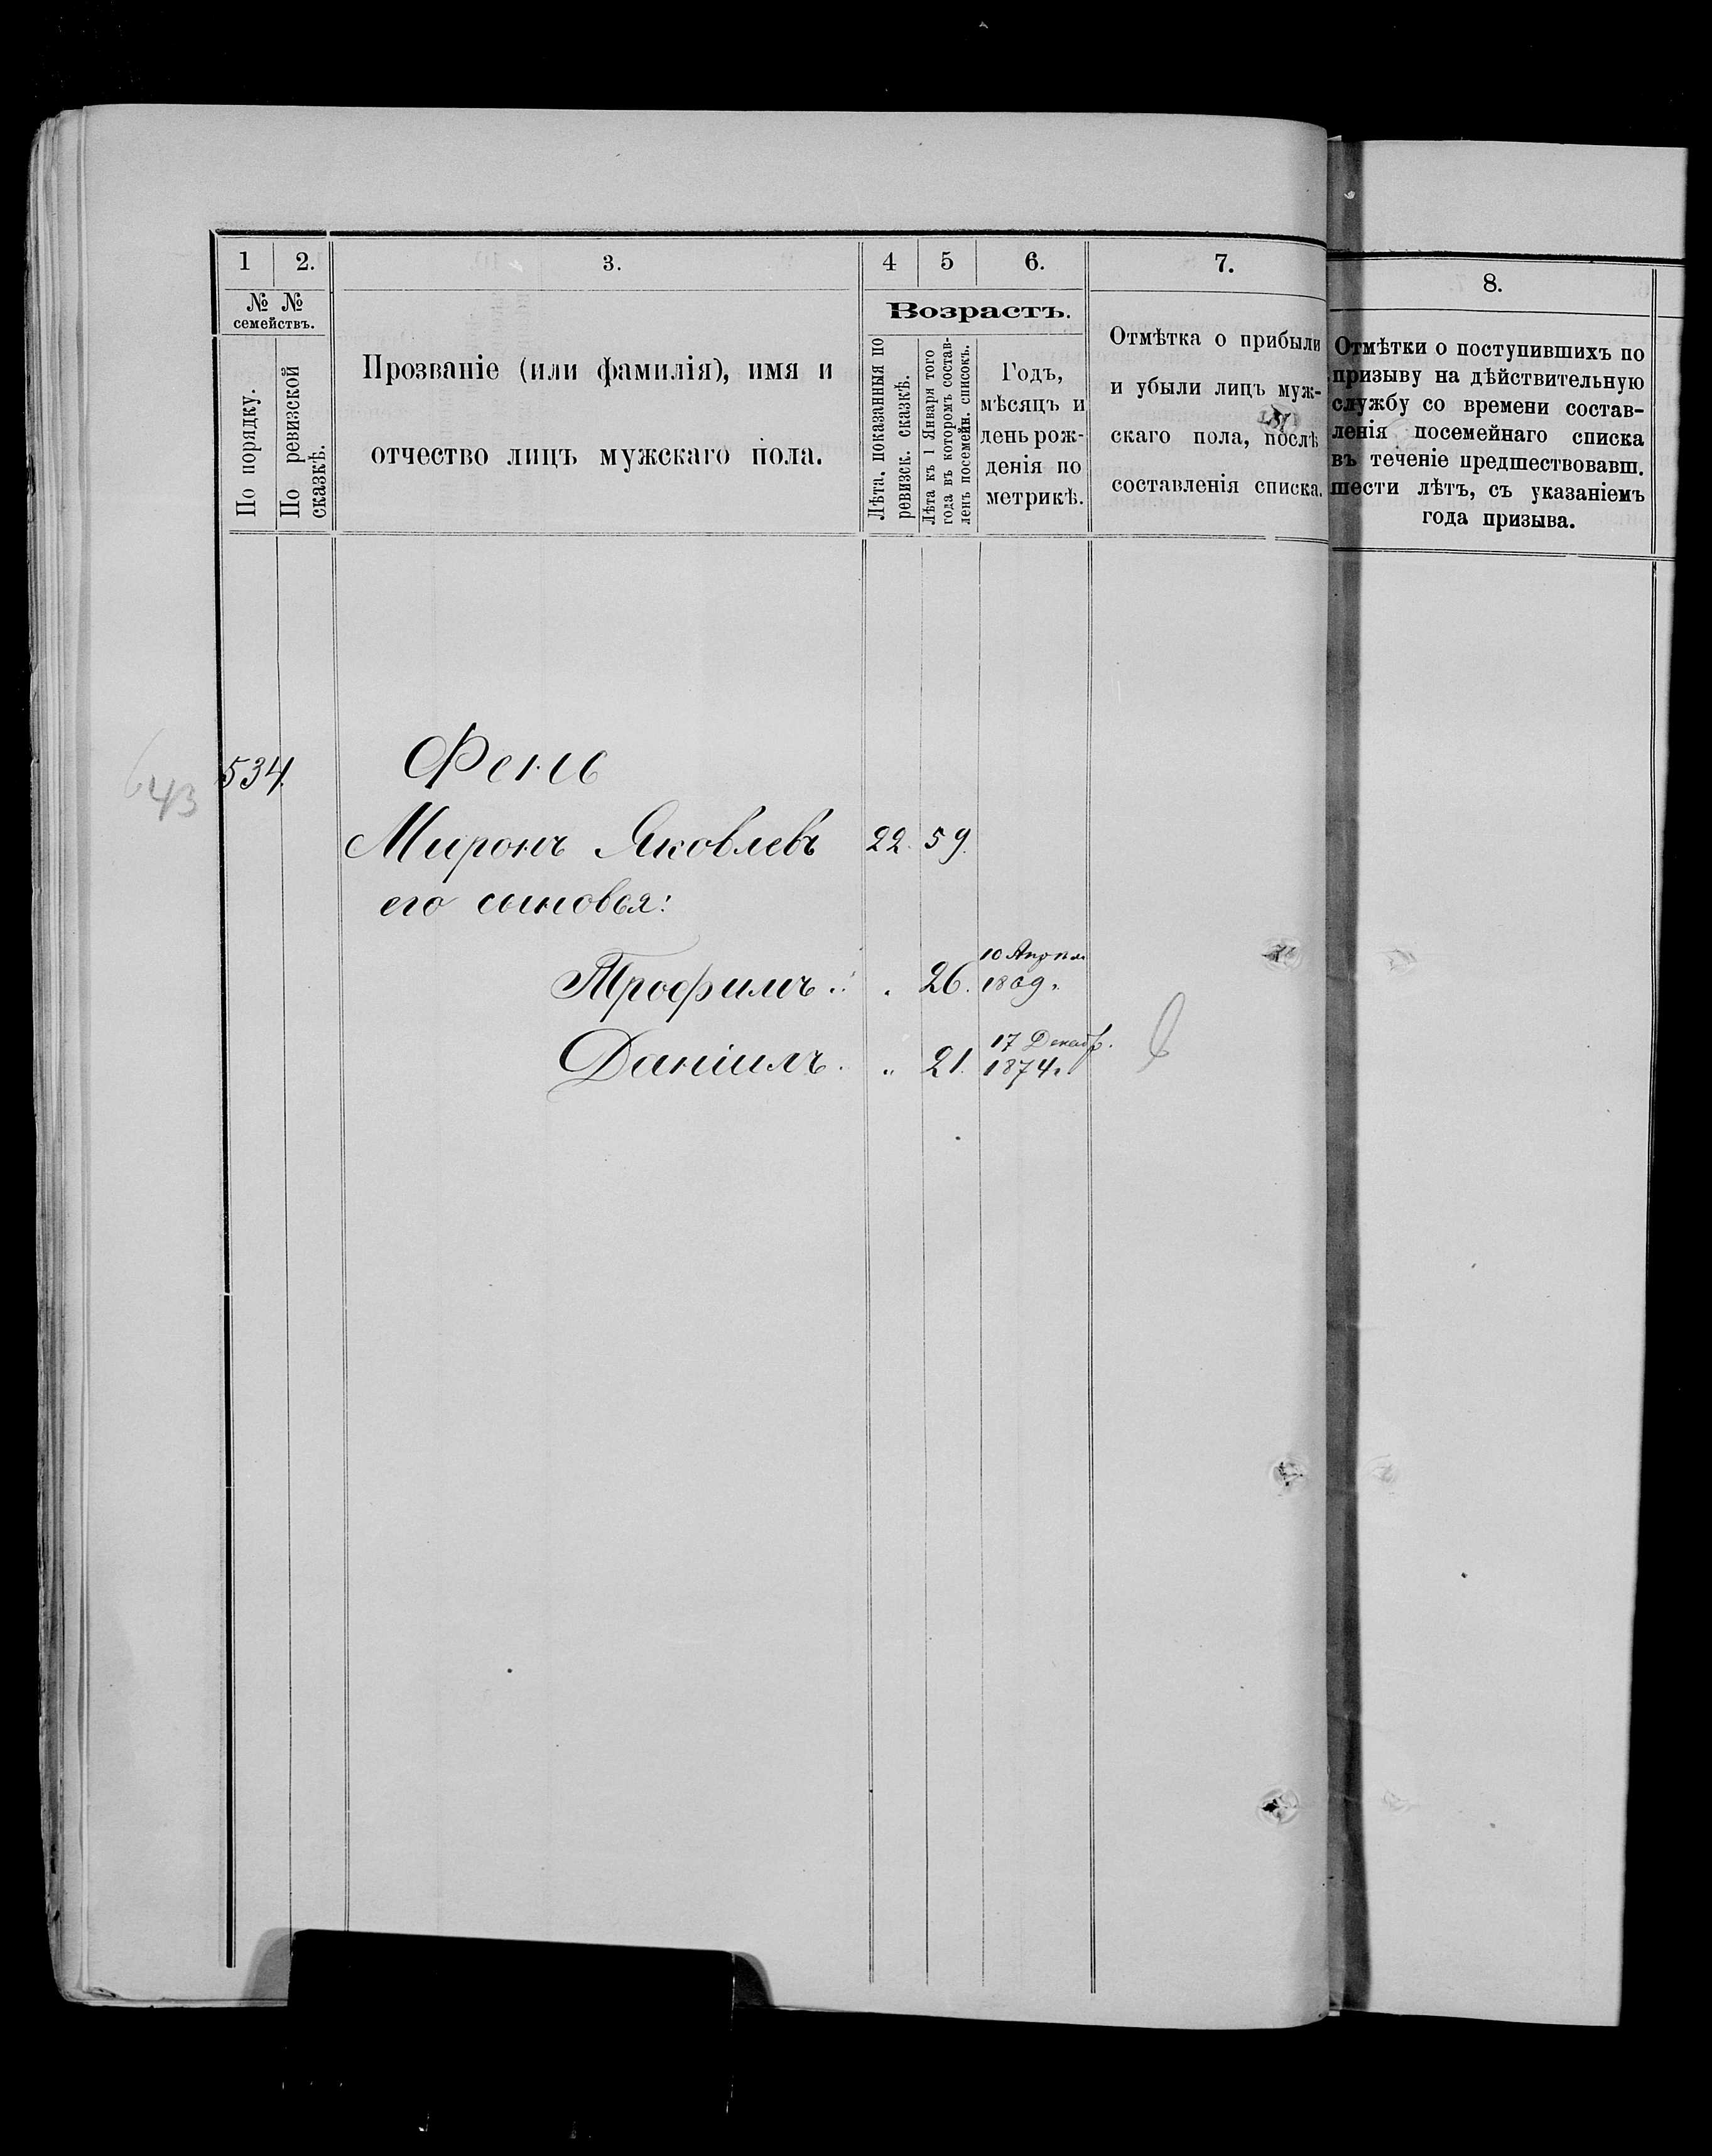 1 2. 3. 4 5 6. 7. 8.
№ № семействъ.
По порядку.
По ревизской сказкѣ.
Прозваніе (или фамилія), имя и
отчество лицъ мужскаго пола.
Возрастъ.
Лѣта, показанныя по
ревизск. сказкѣ.
Лѣта къ 1 Января того
года въ которомъ состав-
ленъ посемейн. списокъ.
Годъ,
мѣсяцъ и
день рож-
денія по
метрикѣ.
Отмѣтка о прибыли
и убыли лицъ муж-
скаго пола, послѣ
составленія списка.
Отмѣтки о поступившихъ по
призыву на дѣйствительную
службу со времени состав-
ленія посемейнаго списка
въ теченіе предшествовавш.
шести лѣтъ, съ указаніемъ
года призыва.
643
534. Фень
Миронъ Яковлевъ 22. 59.
его сыновья:
10 Апрѣля
Трофимъ. 26. 1869.
17 Декаб.
Даніилъ. " 21. 1874.